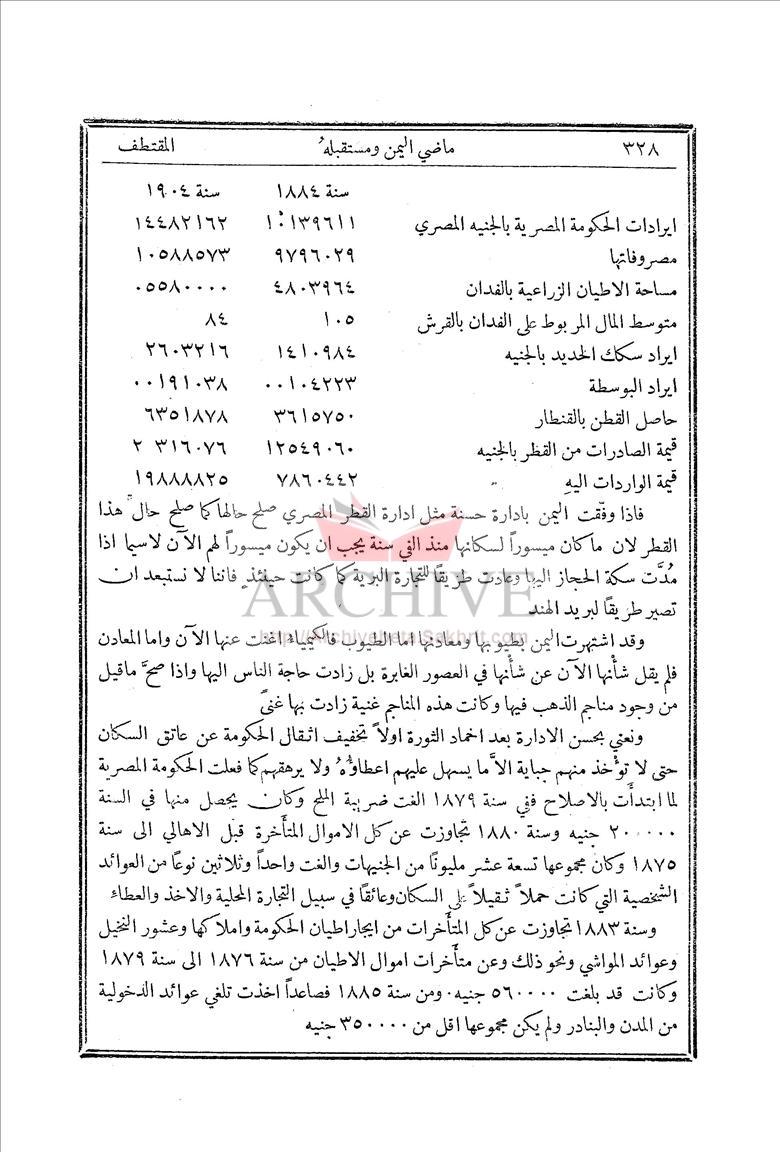 ٣٢٨ ماضي اليمن ومستقبلهُ المقتطف
سنة ١٨٨٤ سنة ١٩٠٤
ايرادات الحكومة المصرية بالجنيه المصري ١٠١٣٩٦١١ ١٤٤٨٢١٦٢
مصروفاتها ٩٧٩٦٠٢٩ ١٠٥٨٨٥٧٣
مساحة الاطيان الزراعية بالفدان ٤٨٠٣٩٦٤ ٠٥٥٨٠٠٠٠
متوسط المال المربوط على الفدان بالقرش ١٠٥ ٨٤
ايراد سكك الحديد بالجنيه ١٤١٠٩٨٤ ٢٦٠٣٢١٦
ايراد البوسطة ٠٠١٠٤٢٢٣ ٠٠١٩١٠٣٨
حاصل القطن بالقنطار ٣٦١٥٧٥٠ ٦٣٥١٨٧٨
قيمة الصادرات من القطر بالجنيه ١٢٥٤٩٠٦٠ ٢ ٣١٦٠٧٦
قيمة الواردات اليهِ " ٧٨٦٠٤٤٢ ١٩٨٨٨٨٢٥
فاذا وفّقت اليمن بادارة حسنة مثل ادارة القطر المصري صلح حالها كما صلح حال هذا
القطر لان ماكان ميسوراً لسكانها منذ الفي سنة يجب ان يكون ميسوراً لهم الآن لاسيما اذا
مُدَّت سكة الحجاز اليها وعادت طريقاً للتجارة البرية كما كانت حينئذٍ فاننا لا نستبعد ان
تصير طريقاً لبريد الهند
ARCHIVE
http://Archivebeta.Sakhrit.com
وقد اشتهرت اليمن بطيوبها ومعادنها اما الطيوب فالكيمياء اغنت عنها الآن واما المعادن
فلم يقل شأنها الآن عن شأنها في العصور الغابرة بل زادت حاجة الناس اليها واذا صحَّ ماقيل
من وجود مناجم الذهب فيها وكانت هذه المناجم غنية زادت بها غنىً
ونعني بحسن الادارة بعد اخماد الثورة اولاً تخفيف اثقال الحكومة عن عاتق السكان
حتى لا تؤخذ منهم جباية الاَّ ما يسهل عليهم اعطاؤهُ ولا يرهقهم كما فعلت الحكومة المصرية
لما ابتدأت بالاصلاح ففي سنة ١٨٧٩ الغت ضريبة الملح وكان يحصل منها في السنة
٢٠٠٠٠٠ جنيه وسنة ١٨٨٠ تجاوزت عن كل الاموال المتأخرة قبل الاهالي الى سنة
١٨٧٥ وكان مجموعها تسعة عشر مليونًا من الجنيهات والغت واحداً وثلاثين نوعاً من العوائد
الشخصية التي كانت حملاً ثقيلاً على السكان وعائقاً في سبيل التجارة المحلية والاخذ والعطاء
وسنة ١٨٨٣ تجاوزت عن كل المتأخرات من ايجار اطيان الحكومة واملاكها وعشور النخيل
وعوائد المواشي ونحو ذلك وعن متأخرات اموال الاطيان من سنة ١٨٧٦ الى سنة ١٨٧٩
وكانت قد بلغت ٥٦٠٠٠٠ جنيه ومن سنة ١٨٨٥ فصاعداً اخذت تلغي عوائد الدخولية
من المدن والبنادر ولم يكن مجموعها اقل من ٣٥٠٠٠٠ جنيه